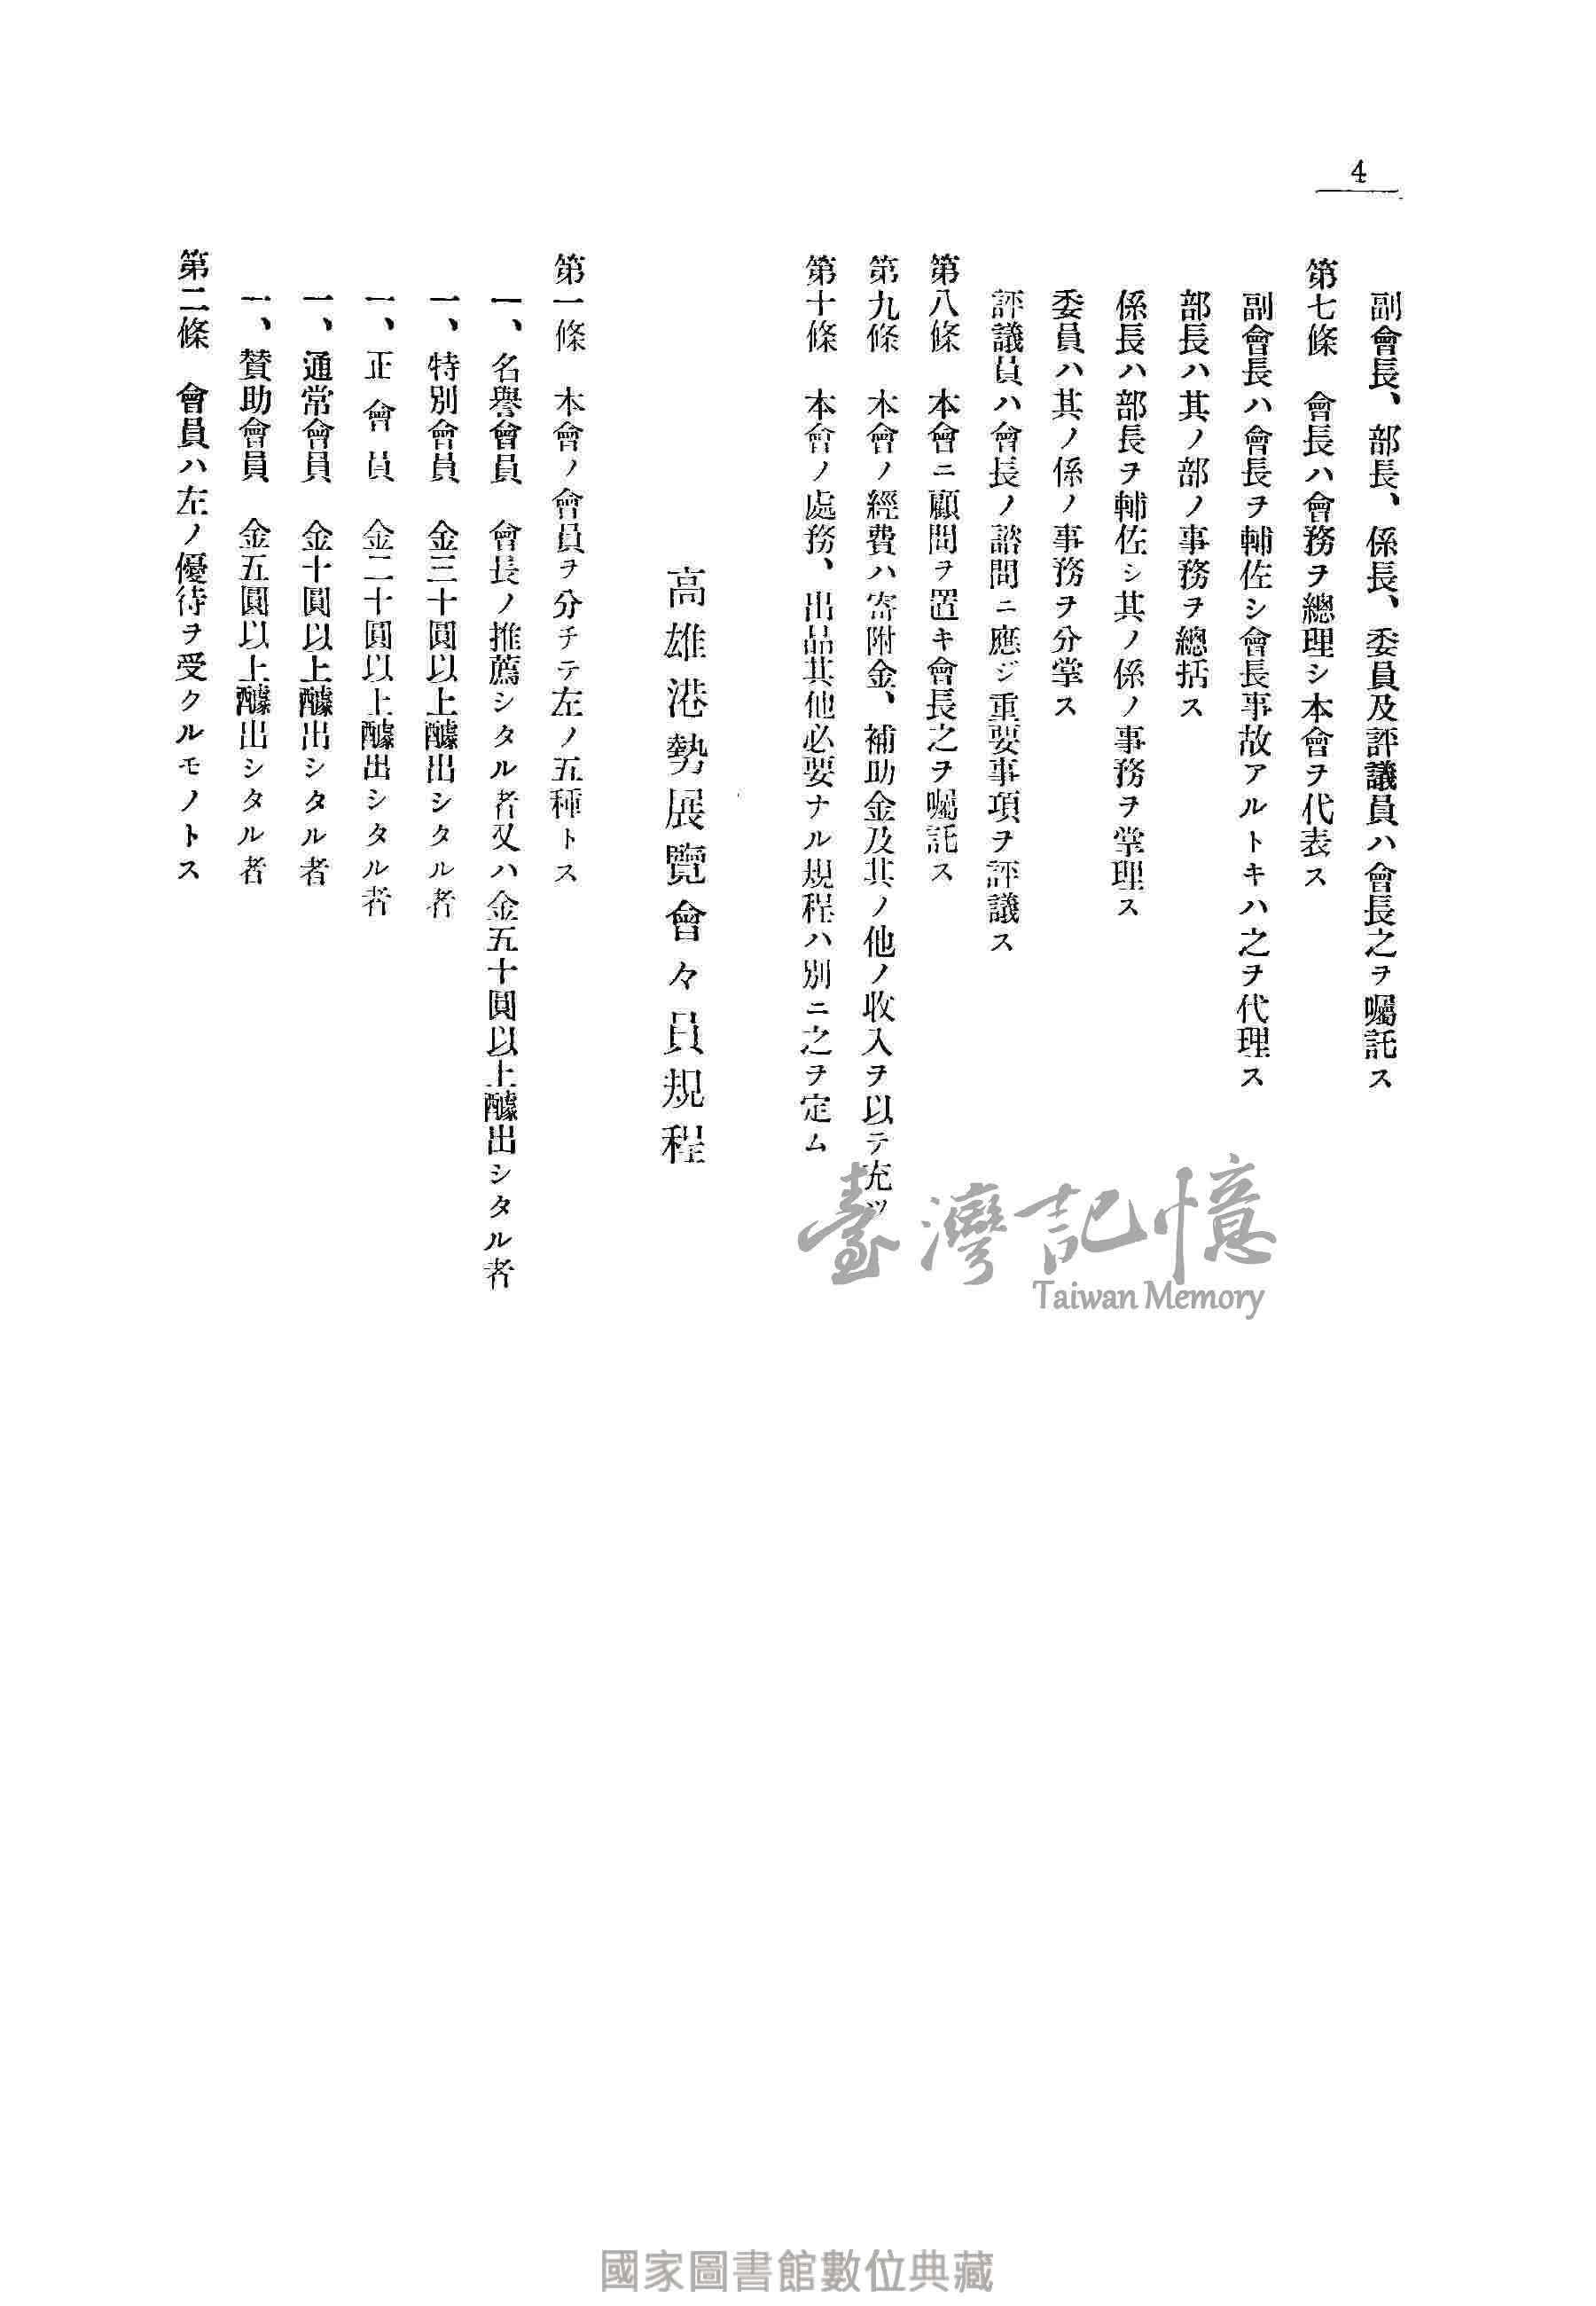 4
副會長、部長、係長、委員及評議員ハ會長之ヲ囑託ス
第七條　會長ハ會務ヲ總理シ本會ヲ代表ス
副會長ハ會長ヲ輔佐シ會長事故アルトキハ之ヲ代理ス
部長ハ其ノ部ノ事務ヲ總括ス
係長ハ部長ヲ輔佐シ其ノ係ノ事務ヲ掌理ス
委員ハ其ノ係ノ事務ヲ分掌ス
評議員ハ會長ノ諮問ニ應ジ重要事項ヲ評議ス
第八條　本會ニ顧問ヲ置キ會長之ヲ囑託ス
第九條　本會ノ經費ハ寄附金、補助金及其ノ他ノ收入ヲ以テ充ツ
第十條　本會ノ處務、出品其他必要ナル規程ハ別ニ之ヲ定ム
高雄港勢展覽會々員規程
第一條　本會ノ會員ヲ分チテ左ノ五種トス
一、名譽會員　會長ノ推薦シタル者又ハ金五十圓以上醵出シタル者
一、特別會員　金三十圓以上醵出シタル者
一、正會員　金二十圓以上醵出シタル者
一、通常會員　金十圓以上醵出シタル者
一、贊助會員　金五圓以上醵出シタル者
第二條　會員ハ左ノ優待ヲ受クルモノトス
臺灣記憶
Taiwan Memory
國家圖書館數位典藏